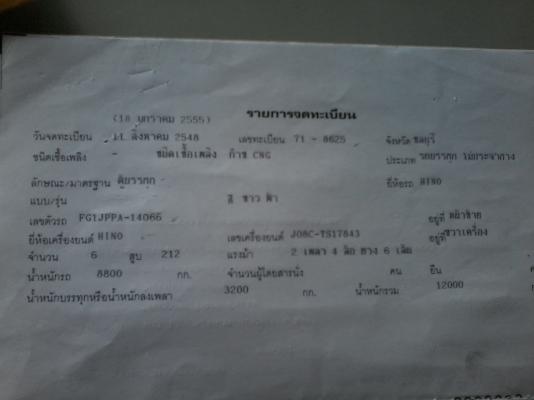 (18 มกราคม 2555) รายการจดทะเบียน
วันจดทะเบียน 11 สิงหาคม 2548 เลขทะเบียน 71 - 8625 จังหวัด ชลบุรี
ชนิดเชื้อเพลิง - ชนิดเชื้อเพลิง ก๊าซ CNG ประเภท รถบรรทุก ไม่ประจำทาง
ลักษณะ/มาตรฐาน ตู้บรรทุก ยี่ห้อรถ HINO
แบบ/รุ่น สี ขาว ฟ้า
เลขตัวรถ FG1JPPA-14066 อยู่ที่ หน้าซ้าย
ยี่ห้อเครื่องยนต์ HINO เลขเครื่องยนต์ J08C-TS17843 อยู่ที่ ขวาเครื่อง
จำนวน 6 สูบ 212 แรงม้า 2 เพลา 4 ล้อ ยาง 6 เส้น
น้ำหนักรถ 8800 กก. จำนวนผู้โดยสารนั่ง คน ยืน
น้ำหนักบรรทุกหรือน้ำหนักลงเพลา 3200 กก. น้ำหนักรวม 12000